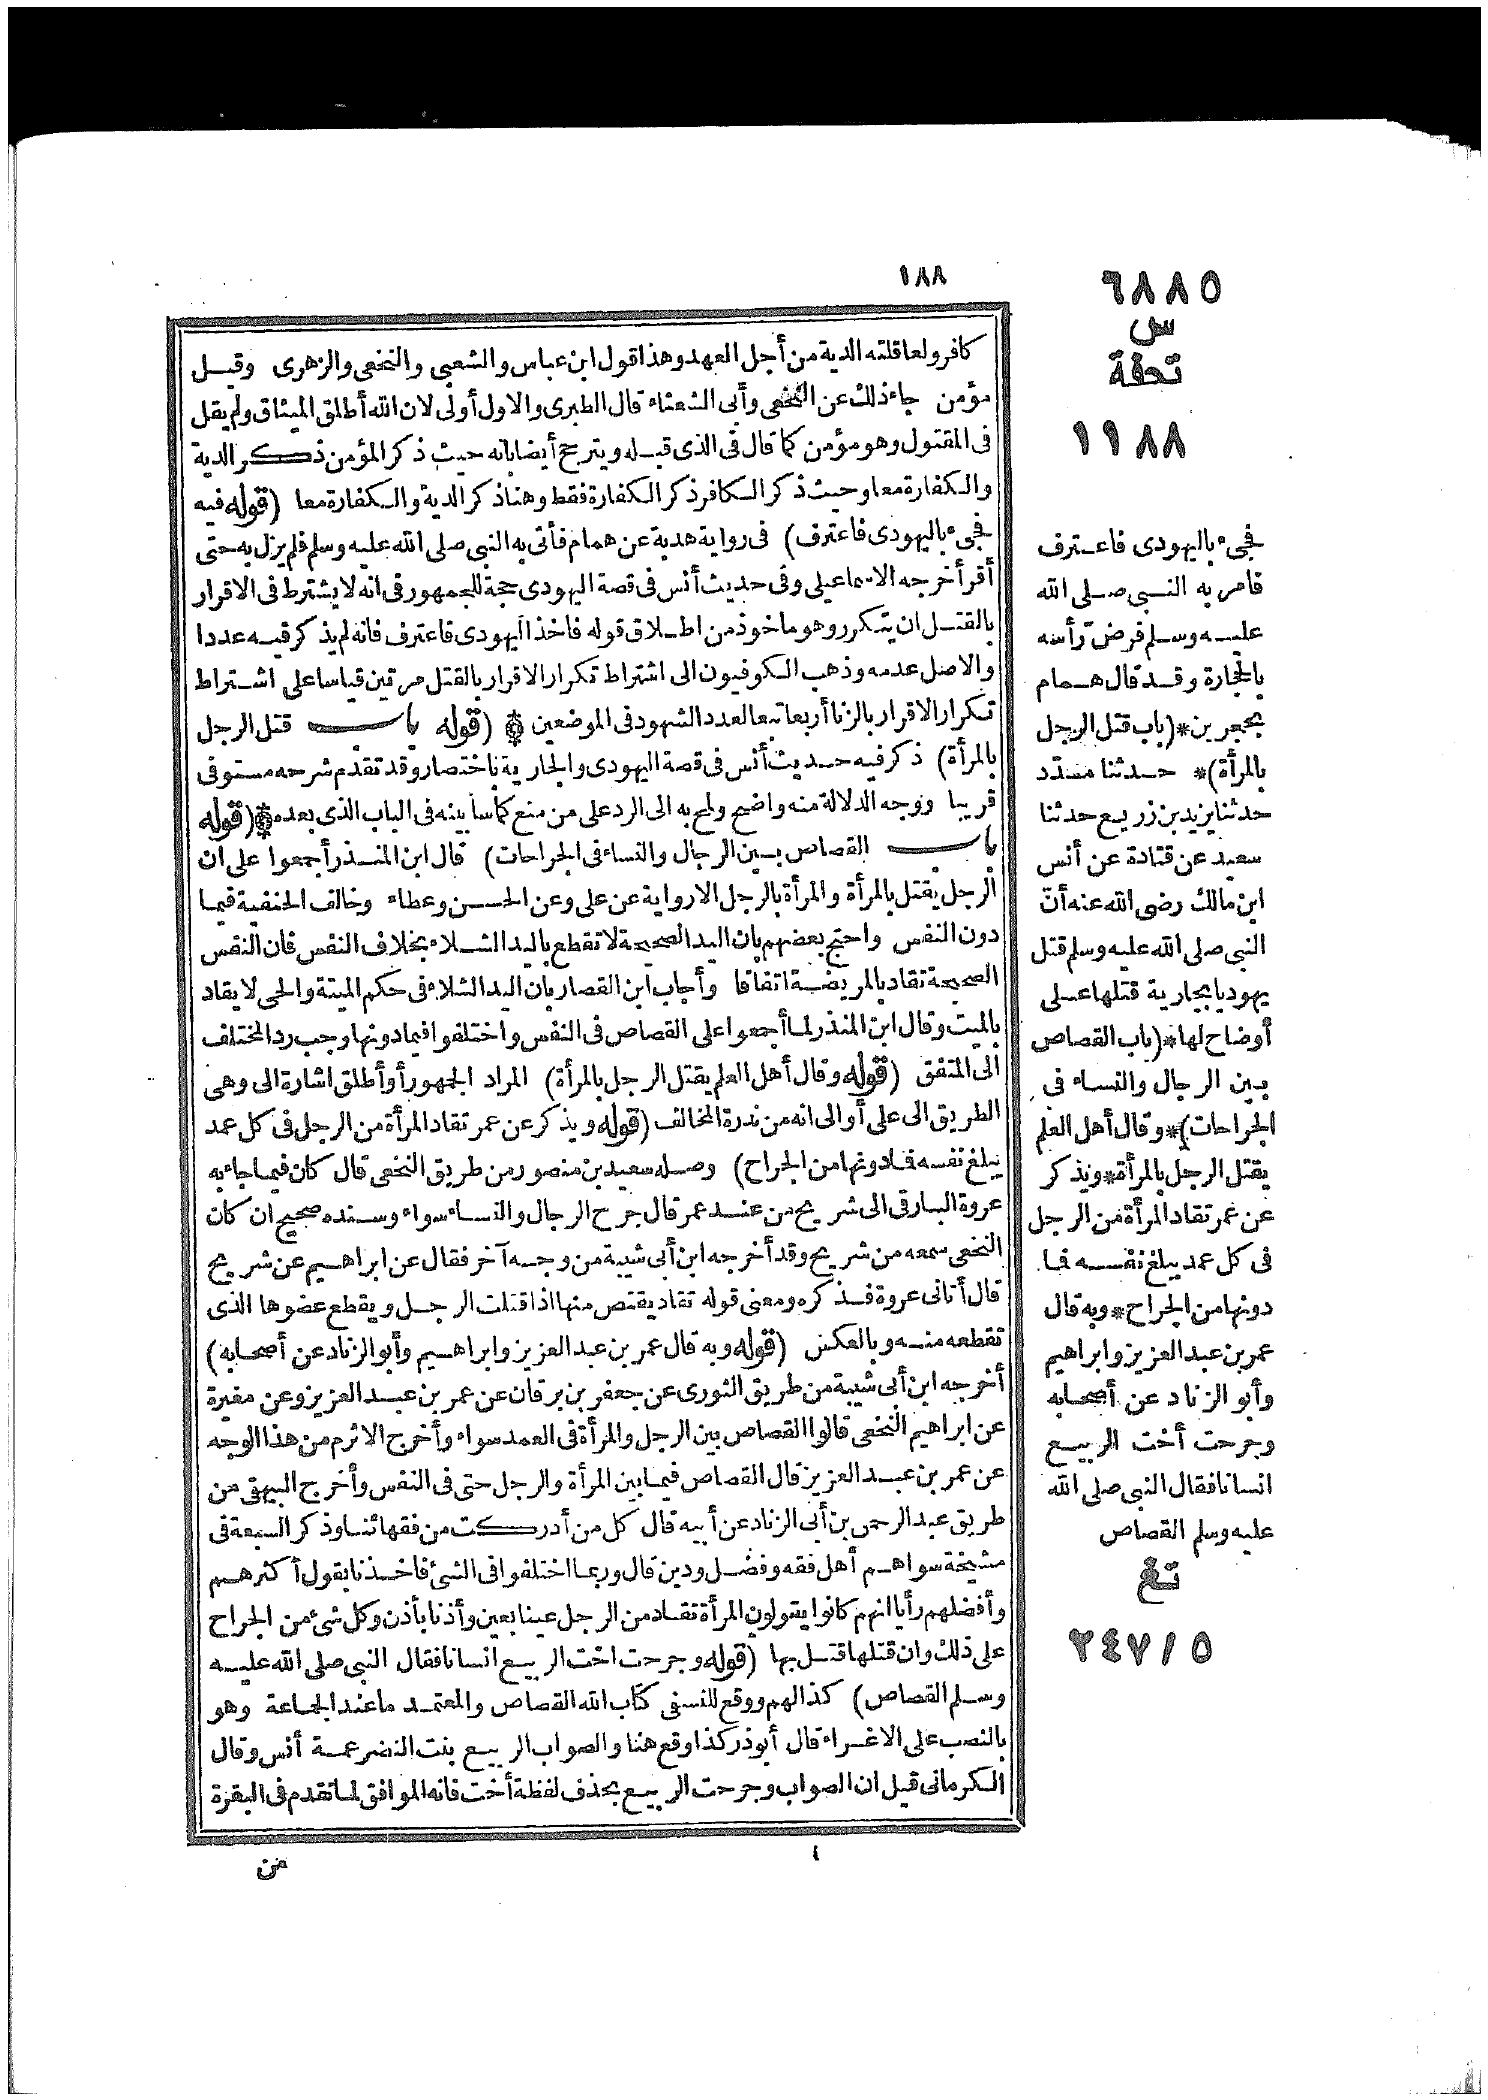 ١٨٨
كافر ولعاقلته الدية من أجل العهد وهذا قول ابن عباس والشعبى والنخعى والزهرى وقيل
مؤمن جاء ذلك عن النخعى وأبى الشعثاء قال الطبرى والاول أولى لان الله أطلق الميثاق ولم يقل
فى المقتول وهو مؤمن كما قال فى الذى قبله ويترجح أيضا بانه حيث ذكر المؤمن ذكر الدية
والكفارة معا وحيث ذكر الكافر ذكر الكفارة فقط وهنا ذكر الدية والكفارة معا (قوله فيه
فجىء باليهودى فاعترف) فى رواية هدبة عن همام فأتى به النبى صلى الله عليه وسلم فلم يزل به حتى
أقر أخرجه الاسماعيلى وفى حديث أنس فى قصة اليهودى حجة للجمهور فى انه لا يشترط فى الاقرار
بالقتل ان يتكرر وهو ماخوذ من اطلاق قوله فاخذ اليهودى فاعترف فانه لم يذكر فيه عددا
والاصل عدمه وذهب الكوفيون الى اشتراط تكرار الاقرار بالقتل مرتين قياسا على اشتراط
تكرار الاقرار بالزنا أربعا تبعا لعدد الشهود فى الموضعين * (قوله باب قتل الرجل
بالمرأة) ذكر فيه حديث أنس فى قصة اليهودى والجارية باختصار وقد تقدم شرحه مستوفى
قريبا ووجه الدلالة منه واضح ولمح به الى الرد على من منع كما سأبينه فى الباب الذى بعده * (قوله
باب القصاص بين الرجال والنساء فى الجراحات) قال ابن المنذر أجمعوا على ان
الرجل يقتل بالمرأة والمرأة بالرجل الا رواية عن على وعن الحسن وعطاء وخالف الحنفية فيما
دون النفس واحتج بعضهم بان اليد الصحيحة لا تقطع باليد الشلاء بخلاف النفس فان النفس
الصحيحة تقاد بالمريضة اتفاقا وأجاب ابن القصار بان اليد الشلاء فى حكم الميتة والحى لا يقاد
بالميت وقال ابن المنذر لما أجمعوا على القصاص فى النفس واختلفوا فيما دونها وجب رد المختلف
الى المتفق (قوله وقال أهل العلم يقتل الرجل بالمرأة) المراد الجمهور أو أطلق اشارة الى وهى
الطريق الى على أو الى انه من ندرة المخالف (قوله ويذكر عن عمر تقاد المرأة من الرجل فى كل عمد
يبلغ نفسه فما دونها من الجراح) وصله سعيد بن منصور من طريق النخعى قال كان فيما جاء به
عروة البارقى الى شريح من عند عمر قال جرح الرجال والنساء سواء وسنده صحيح ان كان
النخعى سمعه من شريح وقد أخرجه ابن أبى شيبة من وجه آخر فقال عن ابراهيم عن شريح
قال أتانى عروة فذكره ومعنى قوله تقاد يقتص منها اذا قتلت الرجل ويقطع عضوها الذى
تقطعه منه وبالعكس (قوله وبه قال عمر بن عبد العزيز وابراهيم وأبو الزناد عن أصحابه)
أخرجه ابن أبى شيبة من طريق الثورى عن جعفر بن برقان عن عمر بن عبد العزيز وعن مغيرة
عن ابراهيم النخعى قالوا القصاص بين الرجل والمرأة فى العمد سواء وأخرج الاثرم من هذا الوجه
عن عمر بن عبد العزيز قال القصاص فيما بين المرأة والرجل حتى فى النفس وأخرج البيهقى من
طريق عبد الرحمن بن أبى الزناد عن أبيه قال كل من أدركت من فقهائنا وذكر السبعة فى
مشيخة سواهم أهل فقه وفضل ودين قال وربما اختلفوا فى الشئ فاخذنا بقول أكثرهم
وأفضلهم رأيا انهم كانوا يقولون المرأة تقاد من الرجل عينا بعين وأذنا بأذن وكل شئ من الجراح
على ذلك وان قتلها قتل بها (قوله وجرحت اخت الربيع انسانا فقال النبى صلى الله عليه
وسلم القصاص) كذا لهم ووقع للنسفى كتاب الله القصاص والمعتمد ما عند الجماعة وهو
بالنصب على الاغراء قال أبو ذر كذا وقع هنا والصواب الربيع بنت النضر عمة أنس وقال
الكرمانى قيل ان الصواب وجرحت الربيع بحذف لفظة أخت فانه الموافق لما تقدم فى البقرة
من
٦٨٨٥
س
تحفة
١١٨٨
فجىء باليهودى فاعترف
فامر به النبى صلى الله
عليه وسلم فرض رأسه
بالحجارة وقد قال همام
بحجرين*(باب قتل الرجل
بالمرأة)* حدثنا مسدد
حدثنا يزيد بن زريع حدثنا
سعيد عن قتادة عن أنس
ابن مالك رضى الله عنه أنّ
النبى صلى الله عليه وسلم قتل
يهوديا بجارية قتلها على
أوضاح لها*(باب القصاص
بين الرجال والنساء فى
الجراحات)*وقال أهل العلم
يقتل الرجل بالمرأة*ويذكر
عن عمر تقاد المرأة من الرجل
فى كل عمد يبلغ نفسه فما
دونها من الجراح*وبه قال
عمر بن عبد العزيز وابراهيم
وأبو الزناد عن أصحابه
وجرحت أخت الربيع
انسانا فقال النبى صلى الله
عليه وسلم القصاص
تغ
٢٤٧/٥